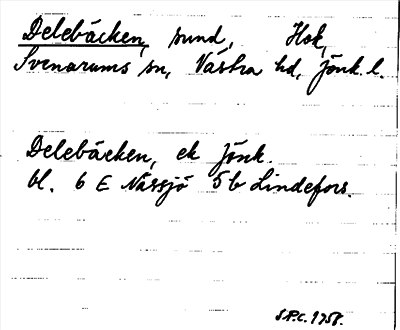 Delebäcken, sund, Hok,
Svenarums sn, Västra hd, Jönk. l.
Delebäcken, ek Jönk.
bl. 6 E Nässjö 5b Lindefors.
S.P.C. 1958.